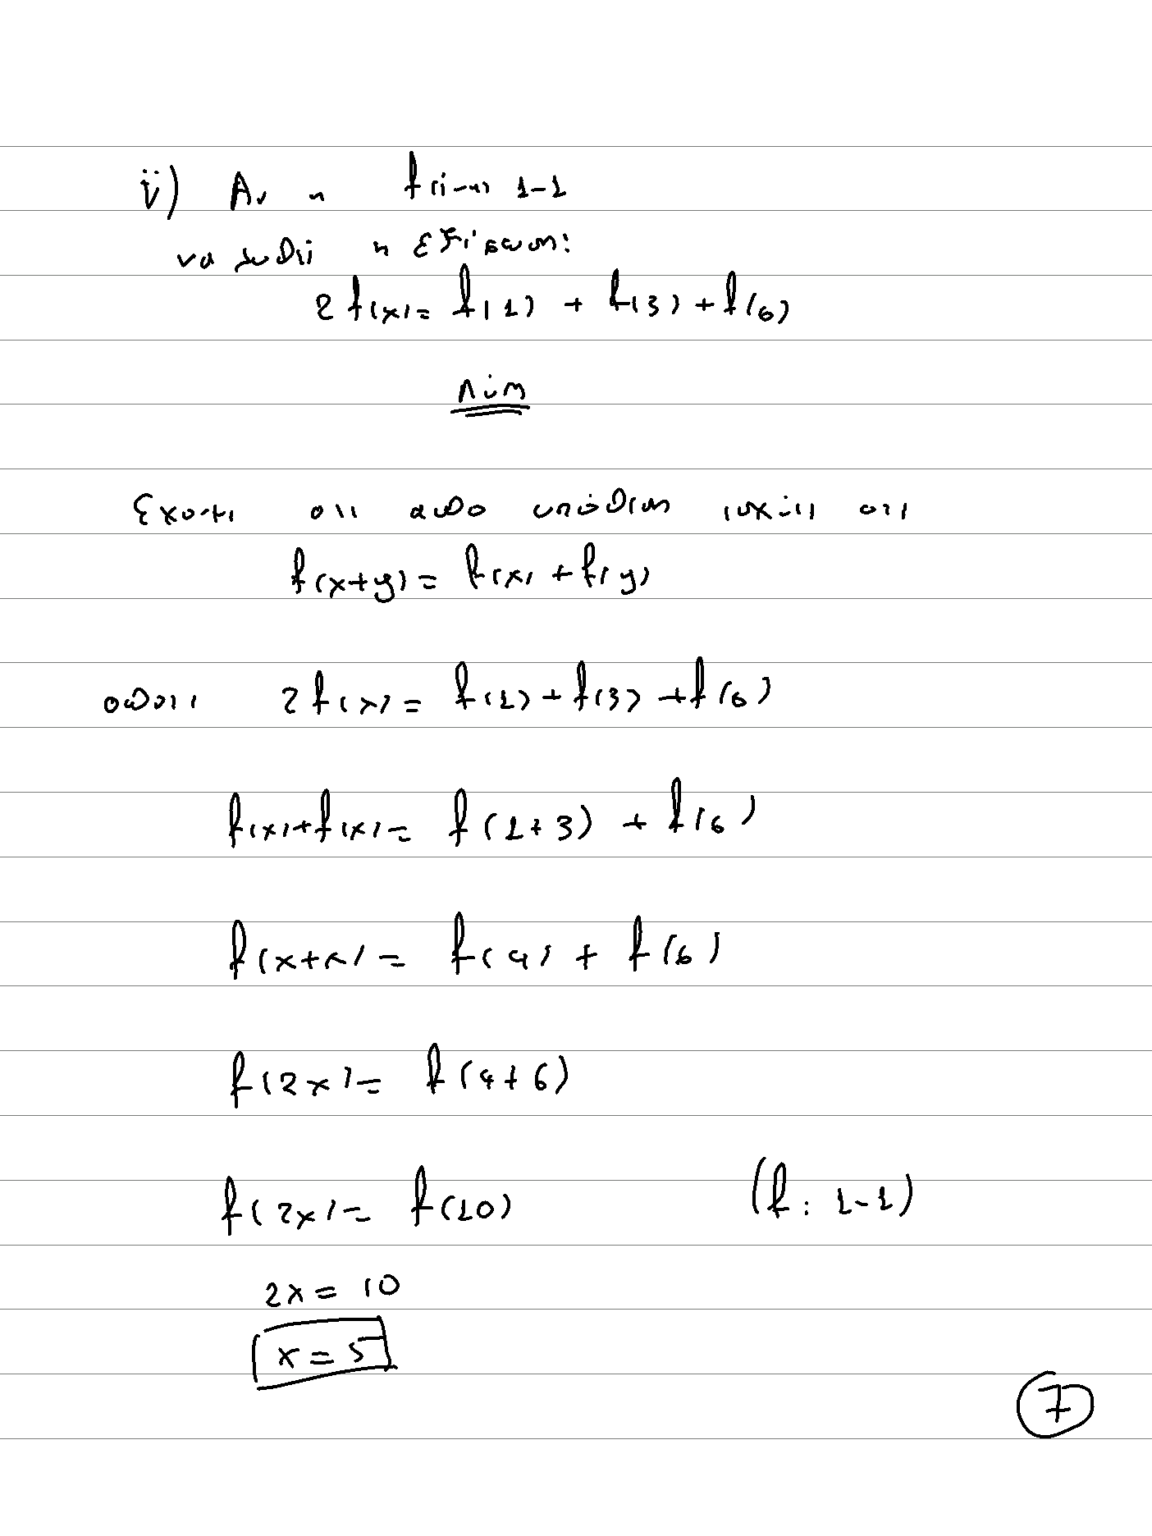 ii) Αν η f είναι 1-1
να λυθεί η εξίσωση:
2f(x) = f(1) + f(3) + f(6)
Λύση
Έχουμε ότι από υπόθεση ισχύει ότι
f(x+y) = f(x) + f(y)
οπότε 2f(x) = f(1) + f(3) + f(6)
f(x) + f(x) = f(1+3) + f(6)
f(x+x) = f(4) + f(6)
f(2x) = f(4+6)
f(2x) = f(10) (f: 1-1)
2x = 10
x = 5
7